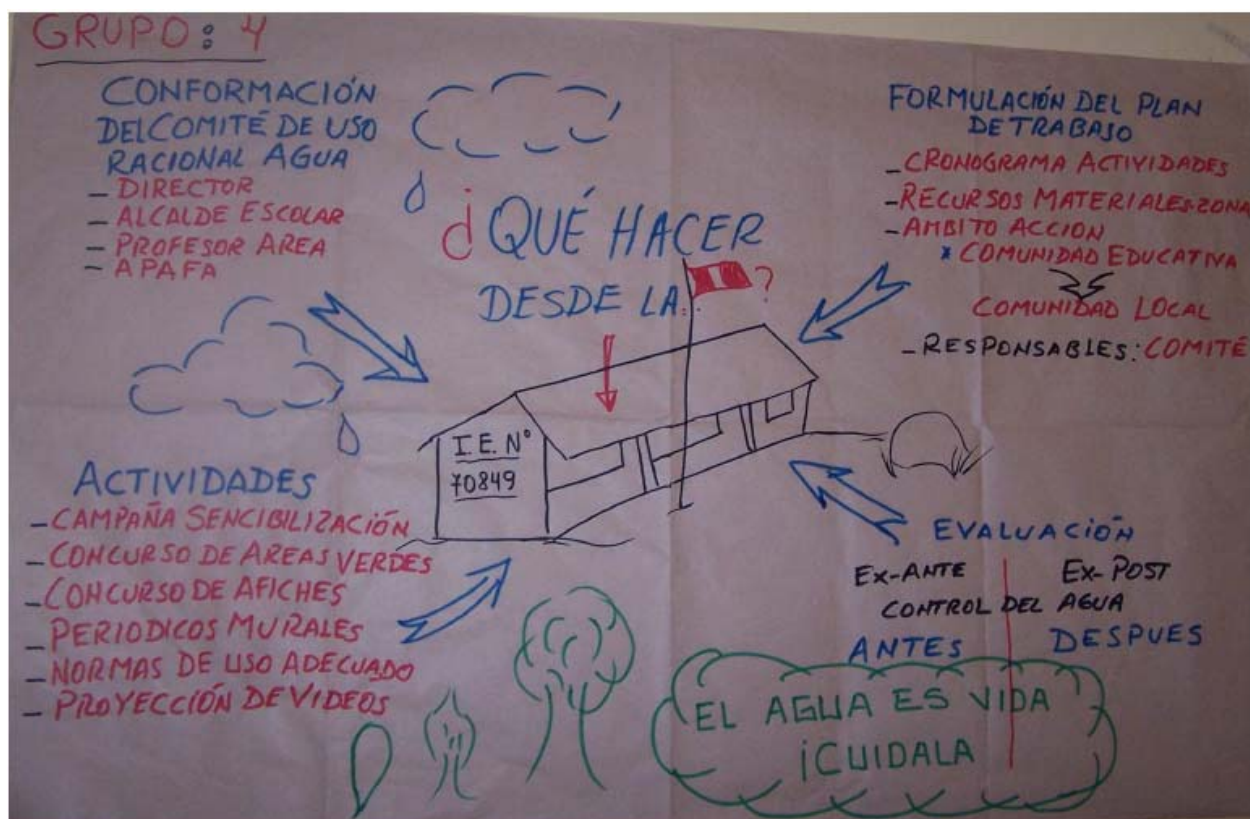 GRUPO: 4
CONFORMACIÓN
DEL COMITÉ DE USO
RACIONAL AGUA
- DIRECTOR
- ALCALDE ESCOLAR
- PROFESOR AREA
- APAFA
¿QUÉ HACER
DESDE LA..?
FORMULACIÓN DEL PLAN
DE TRABAJO
- CRONOGRAMA ACTIVIDADES
- RECURSOS MATERIALES-ZONA
- AMBITO ACCION
* COMUNIDAD EDUCATIVA
COMUNIDAD LOCAL
- RESPONSABLES: COMITÉ
I.E. N°
70849
ACTIVIDADES
- CAMPAÑA SENCIBILIZACIÓN
- CONCURSO DE AREAS VERDES
- CONCURSO DE AFICHES
- PERIODICOS MURALES
- NORMAS DE USO ADECUADO
- PROYECCIÓN DE VIDEOS
EVALUACIÓN
EX-ANTE EX-POST
CONTROL DEL AGUA
ANTES DESPUES
EL AGUA ES VIDA
¡CUIDALA